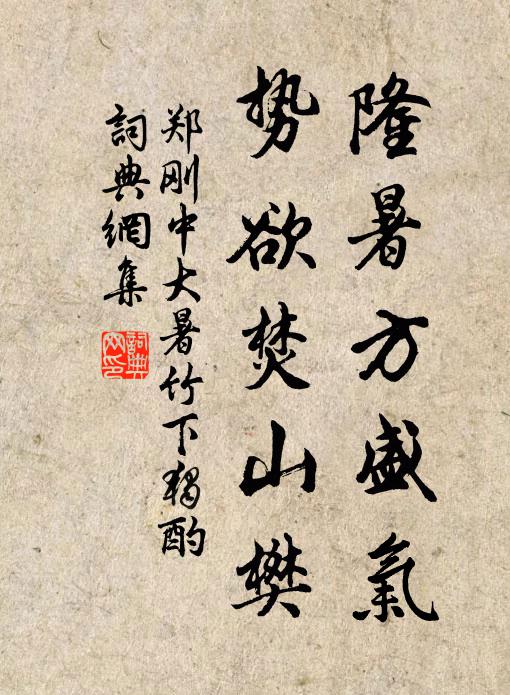 隆暑方盛氣
势欲焚山樊
郑刚中大暑竹下独酌
詞典網集
詞典网印